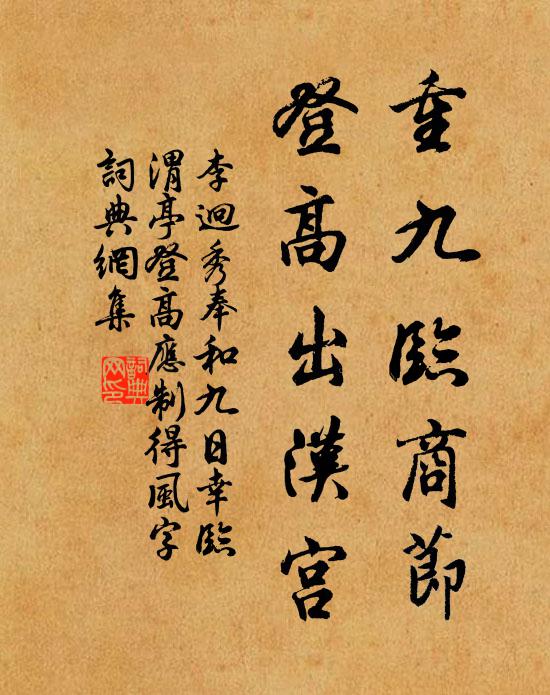 重九臨商節
登高出漢宮
李迥秀奉和九日幸臨
渭亭登高應制得風字
詞典網集
詞典
网印